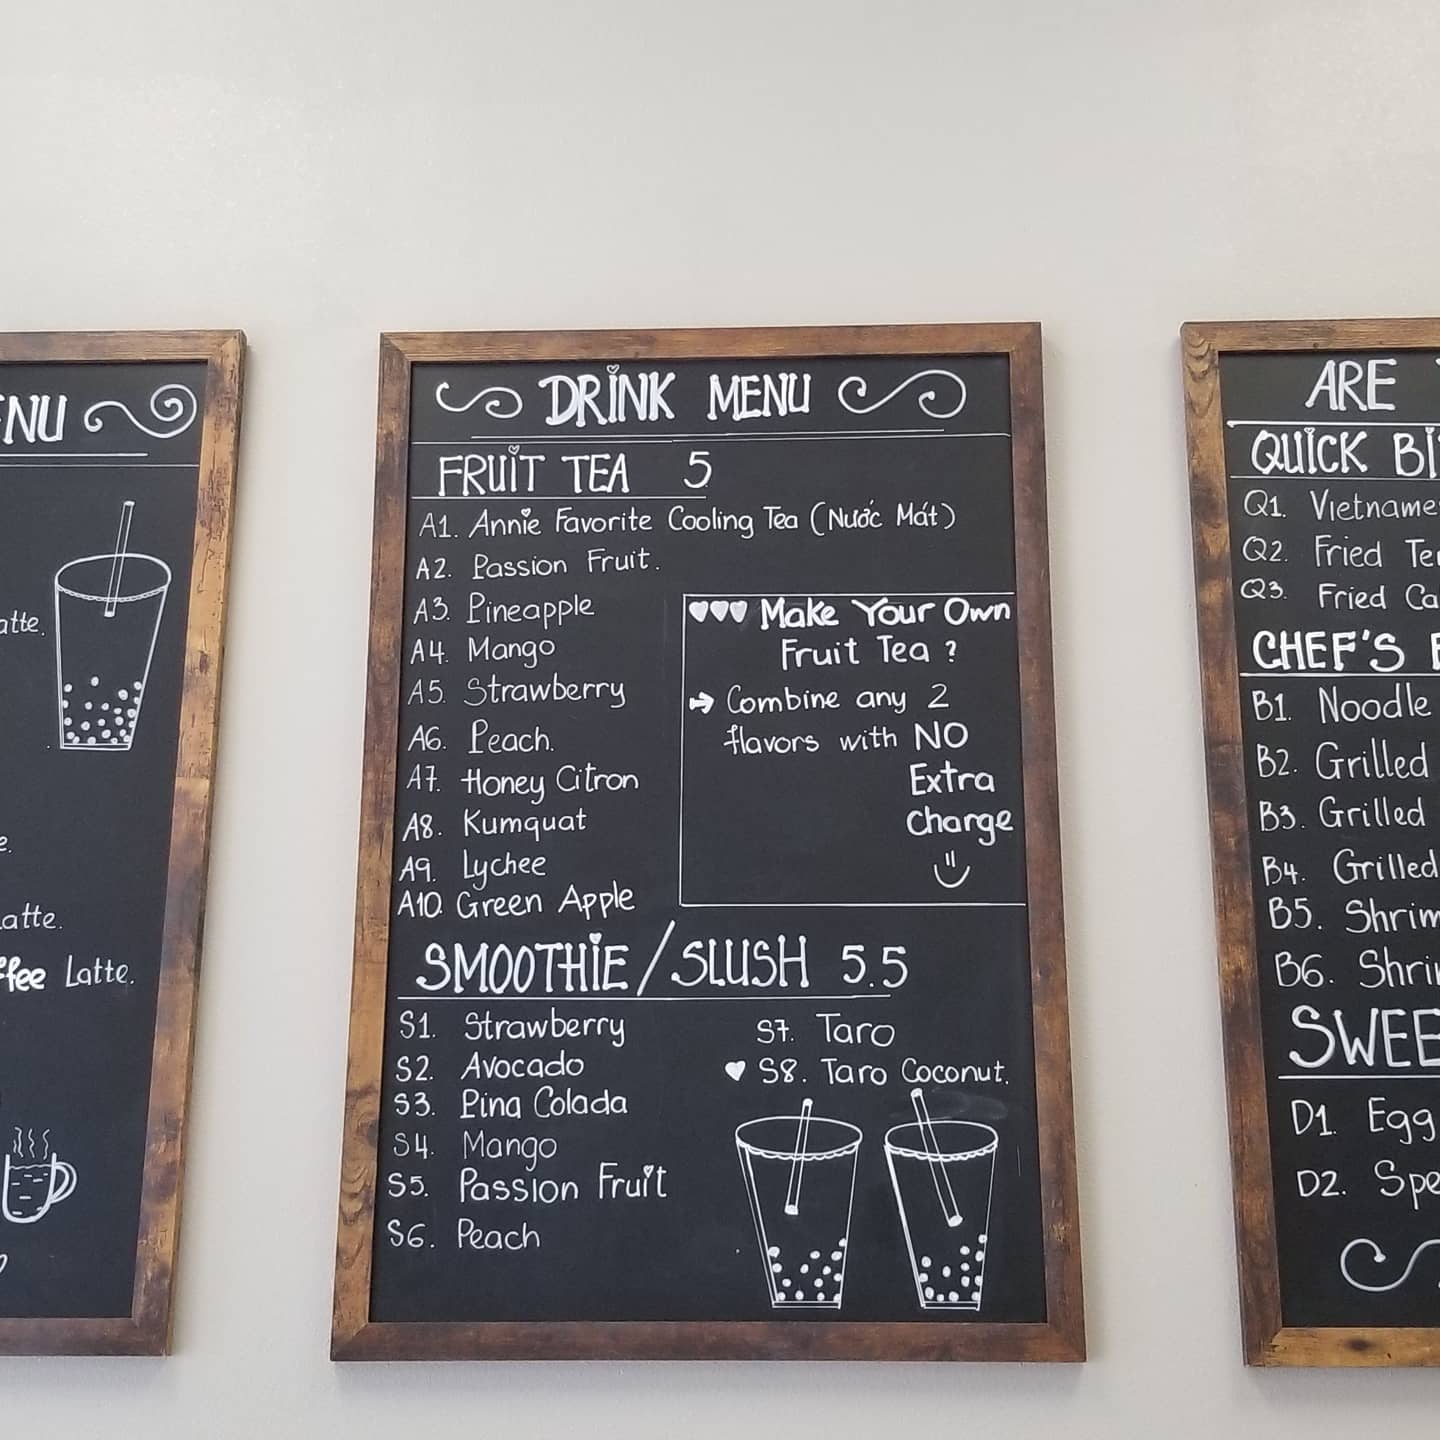 ENU
atte.
e.
Latte.
ffee Latte.
DRINK MENU
FRUIT TEA 5
A1. Annie Favorite Cooling Tea (Nước Mát)
A2. Passion Fruit.
A3. Pineapple
A4. Mango
A5. Strawberry
A6. Peach.
A7. Honey Citron
A8. Kumquat
A9. Lychee
A10. Green Apple
♥♥♥ Make Your Own
Fruit Tea ?
→ Combine any 2
flavors with NO
Extra
Charge
SMOOTHIE/SLUSH 5.5
S1. Strawberry
S2. Avocado
S3. Pina Colada
S4. Mango
S5. Passion Fruit
S6. Peach
S7. Taro
♥ S8. Taro Coconut.
ARE
QUICK BI
Q1. Vietname
Q2. Fried Te
Q3. Fried Ca
CHEF'S
B1. Noodle
B2. Grilled
B3. Grilled
B4. Grilled
B5. Shrim
B6. Shri
SWEE
D1. Egg
D2. Spe